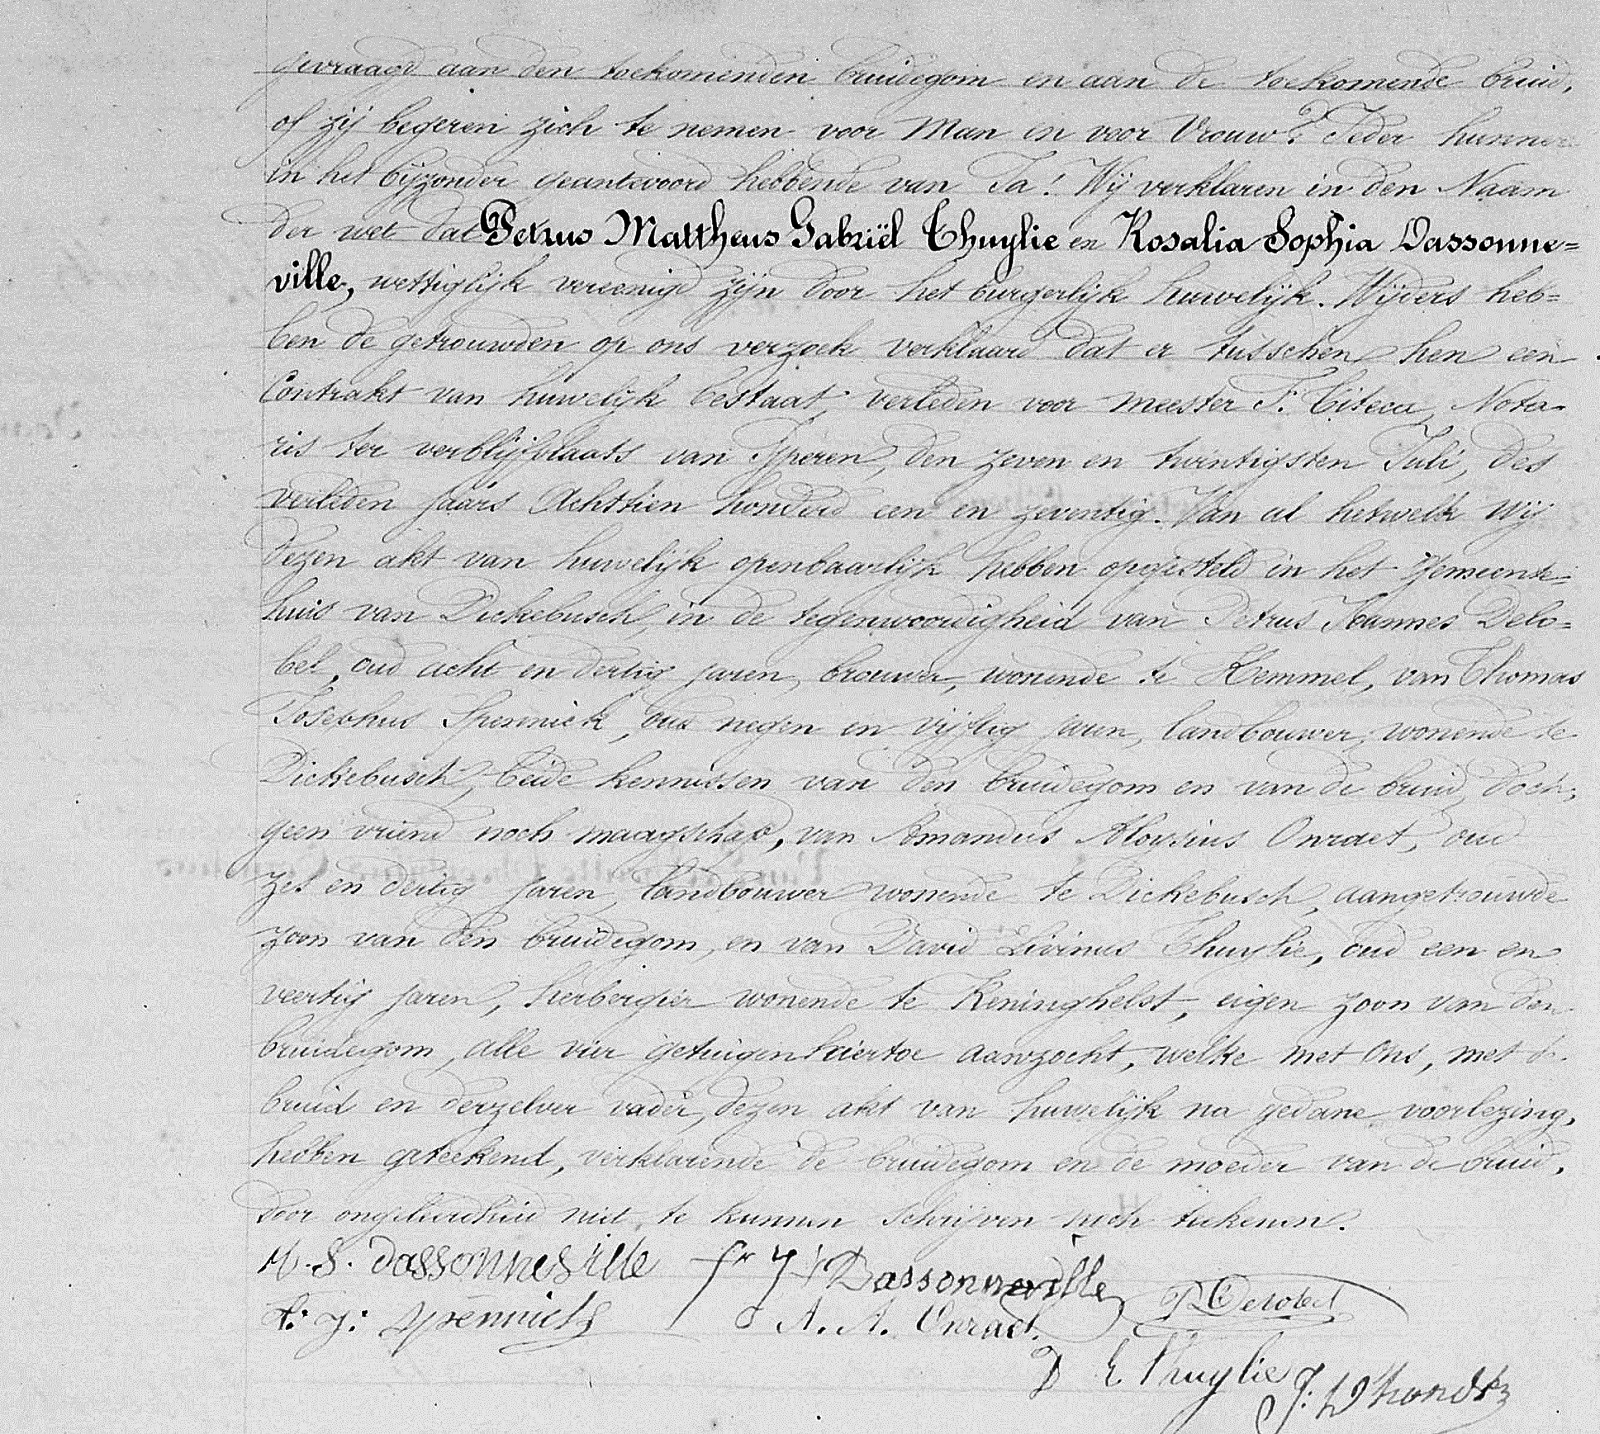 gevraagd aan den toekomenden bruidegom en aan de toekomende bruid,
of zij begeren zich te nemen voor Man en voor Vrouw? Ieder hunner
in het bijzonder geantwoord hebbende van Ja! Wij verklaren in den Naam
der wet dat Petrus Mattheus Gabriël Thuylie en Rosalia Sophia Dassonne=
ville, wettiglijk vereenigd zijn door het burgerlijk huwelijk. Wijders heb=
ben de getrouwden op ons verzoek verklaard dat er tusschen hen een
Contrakt van huwelijk bestaat, verleden voor meester F. Titeca, Nota-
ris ter verblijfplaats van Yperen, den zeven en twintigsten Juli, des
verleden jaars Achttien honderd een en zeventig. Van al hetwelk Wij
dezen akt van huwelijk openbaarlijk hebben opgesteld in het gemeente=
huis van Dickebusch, in de tegenwoordigheid van Petrus Joannes Delo=
bel, oud acht en dertig jaren, brouwer, wonende te Kemmel, van Thomas
Josephus Spennick, oud negen en vijftig jaren, landbouwer, wonende te
Dickebusch, beide kennissen van den bruidegom en van de bruid, doch,
geen vriend noch maagschap, van Amandus Aloysius Onraet, oud
zes en dertig jaren, landbouwer wonende te Dickebusch, aangetrouwde
zoon van den bruidegom, en van David Livinus Thuylie, oud een en
veertig jaren, herbergier wonende te Keninghelst, eigen zoon van den
bruidegom, alle vier getuigen hiertoe aanzocht, welke met Ons, met de
bruid en derzelver vader, dezen akt van huwelijk na gedane voorlezing,
hebben geteekend, verklarende de bruidegom en de moeder van de bruid,
door ongeleerdheid niet te kunnen schrijven noch teekenen.
R. S. Dassonneville Dassonneville P. Delobel
t: j: spennick A. A. Onraet
D L Thuylie J: D'hondt